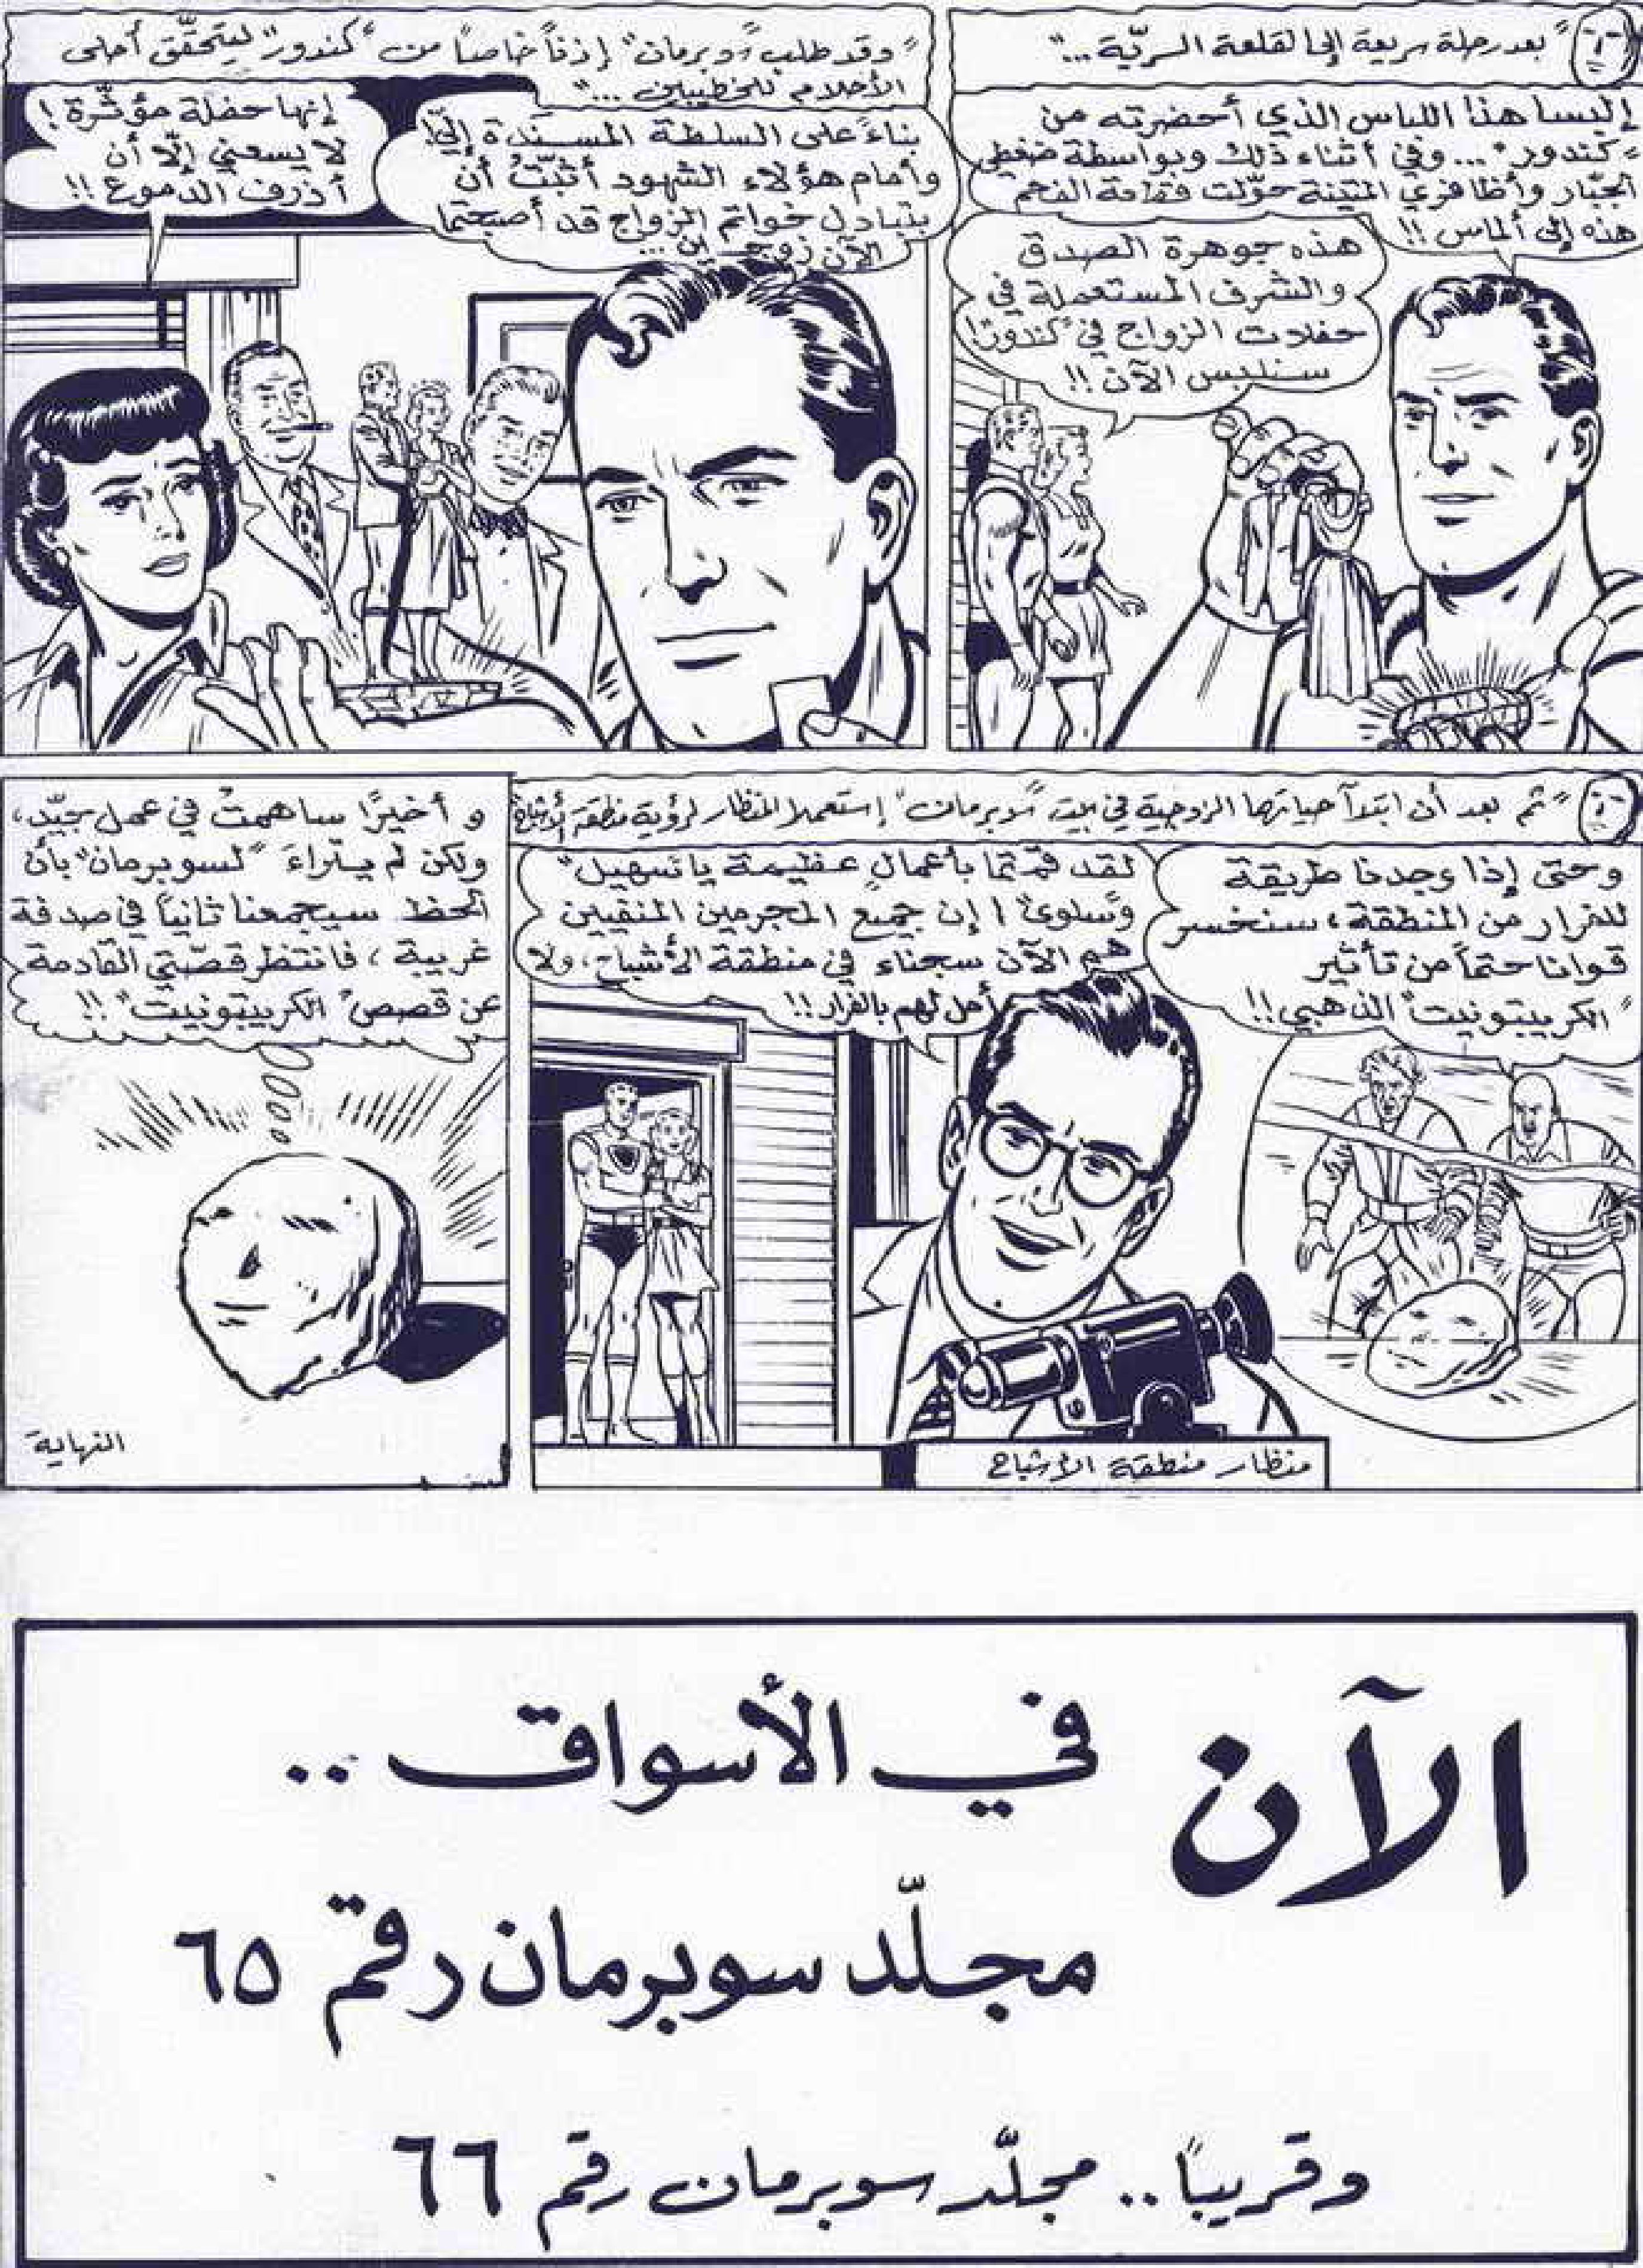 "بعد رحلة سريعة إلى القلعة السرّية..."
إلبسا هذا اللباس الذي أحضرته من
"كندور"... وفي أثناء ذلك وبواسطة ضغطي
الجبّار وأظافري المتينة حوّلت فحامة الفحم
هذه إلى ألماس !!
هذه جوهرة الصدق
والشرف المستعملة في
حفلات الزواج في "كندور"!
سنلبس الآن !!
"وقد طلب "سوبرمان" إذناً خاصاً من "كندور" ليتحقّق أحلى
الأحلام للخطيبين ..."
بناءً على السلطة المسندة إليّ!
وأمام هؤلاء الشهود أثبّتُ أن
بتبادل خواتم الزواج قد أصبحتما
الآن زوجين ...
إنها حفلة مؤثّرة !
لا يسعني إلّا أن
أذرف الدموع !!
"ثم بعد أن ابتدآ حياتهما الزوجية في بيت "سوبرمان" إستعملا المنظار لرؤية منطقة الأشباح
وحتى إذا وجدنا طريقة
للفرار من المنطقة، سنخسر
قوانا حتماً من تأثير
"الكريبتونيت" الذهبي !!
لقد قمتما بأعمالٍ عظيمة يا "سهيل"
و"سلوى" ! إن جميع المجرمين المنفيين
هم الآن سجناء في منطقة الأشباح، ولا
أمل لهم بالفرار !!
منظار منطقة الأشباح
و أخيرًا ساهمتُ في عمل جيّد،
ولكن لم يتراءَ "لسوبرمان" بأن
الحظ سيجمعنا ثانياً في صدفة
غريبة ، فانتظر قصّتي القادمة
عن قصص "الكريبتونيت" !!
النهاية
الآن في الأسواق ..
مجلّد سوبرمان رقم ٦٥
وقريباً .. مجلّد سوبرمان رقم ٦٦